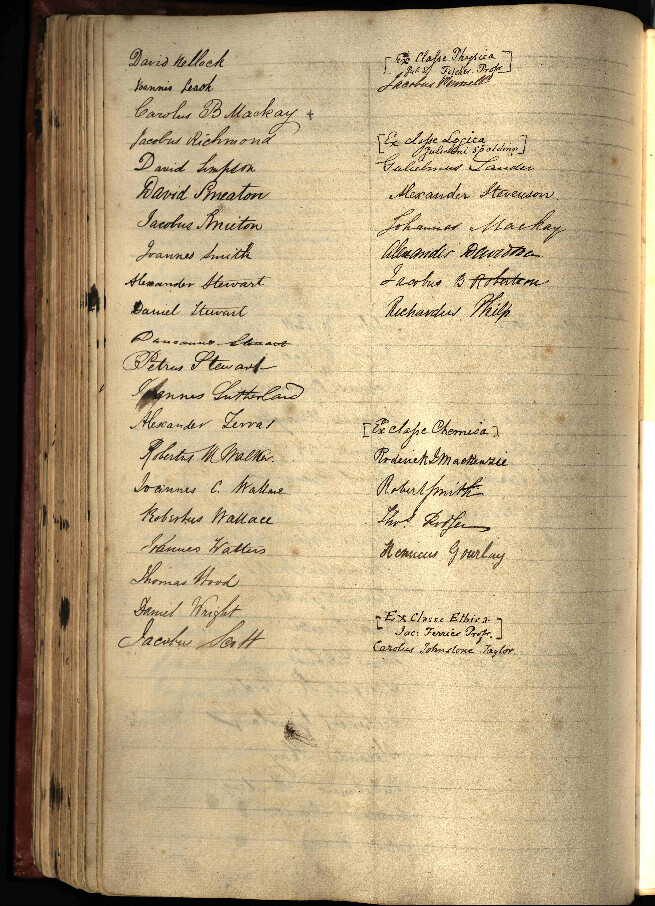 David Kellock
Ioannis Leash
Carolus B Mackay +
Jacobus Richmond
David Simpson
David Smeaton
Jacobus Smieton
Joannes Smith
Alexander Stewart
Daniel Stewart
Stewart
Petrus Stewart
Joannes Sutherland
Alexander
Robertus W Walker
Joannes C. Wallace
Robertus Wallace
Joannes Watters
Thomas Wood
Daniel Wright
Jacobus Scott
[Ex Classe Physica
Fischer Profr.]
Jacobus
[Ex classe Logica
Gulielmi Spalding]
Gulielmus Lauder
Alexander Stevenson
Johannes Mackay
Alexander Davidson
Jacobus B Robertson
Richardus Philp
[Ex classe Chemica]
Roderick I Mackenzie
Robert Smith
Thos
Gourlay
[Ex Classe Ethica
Jac: Ferrier Profr.]
Carolus Johnstone Taylor